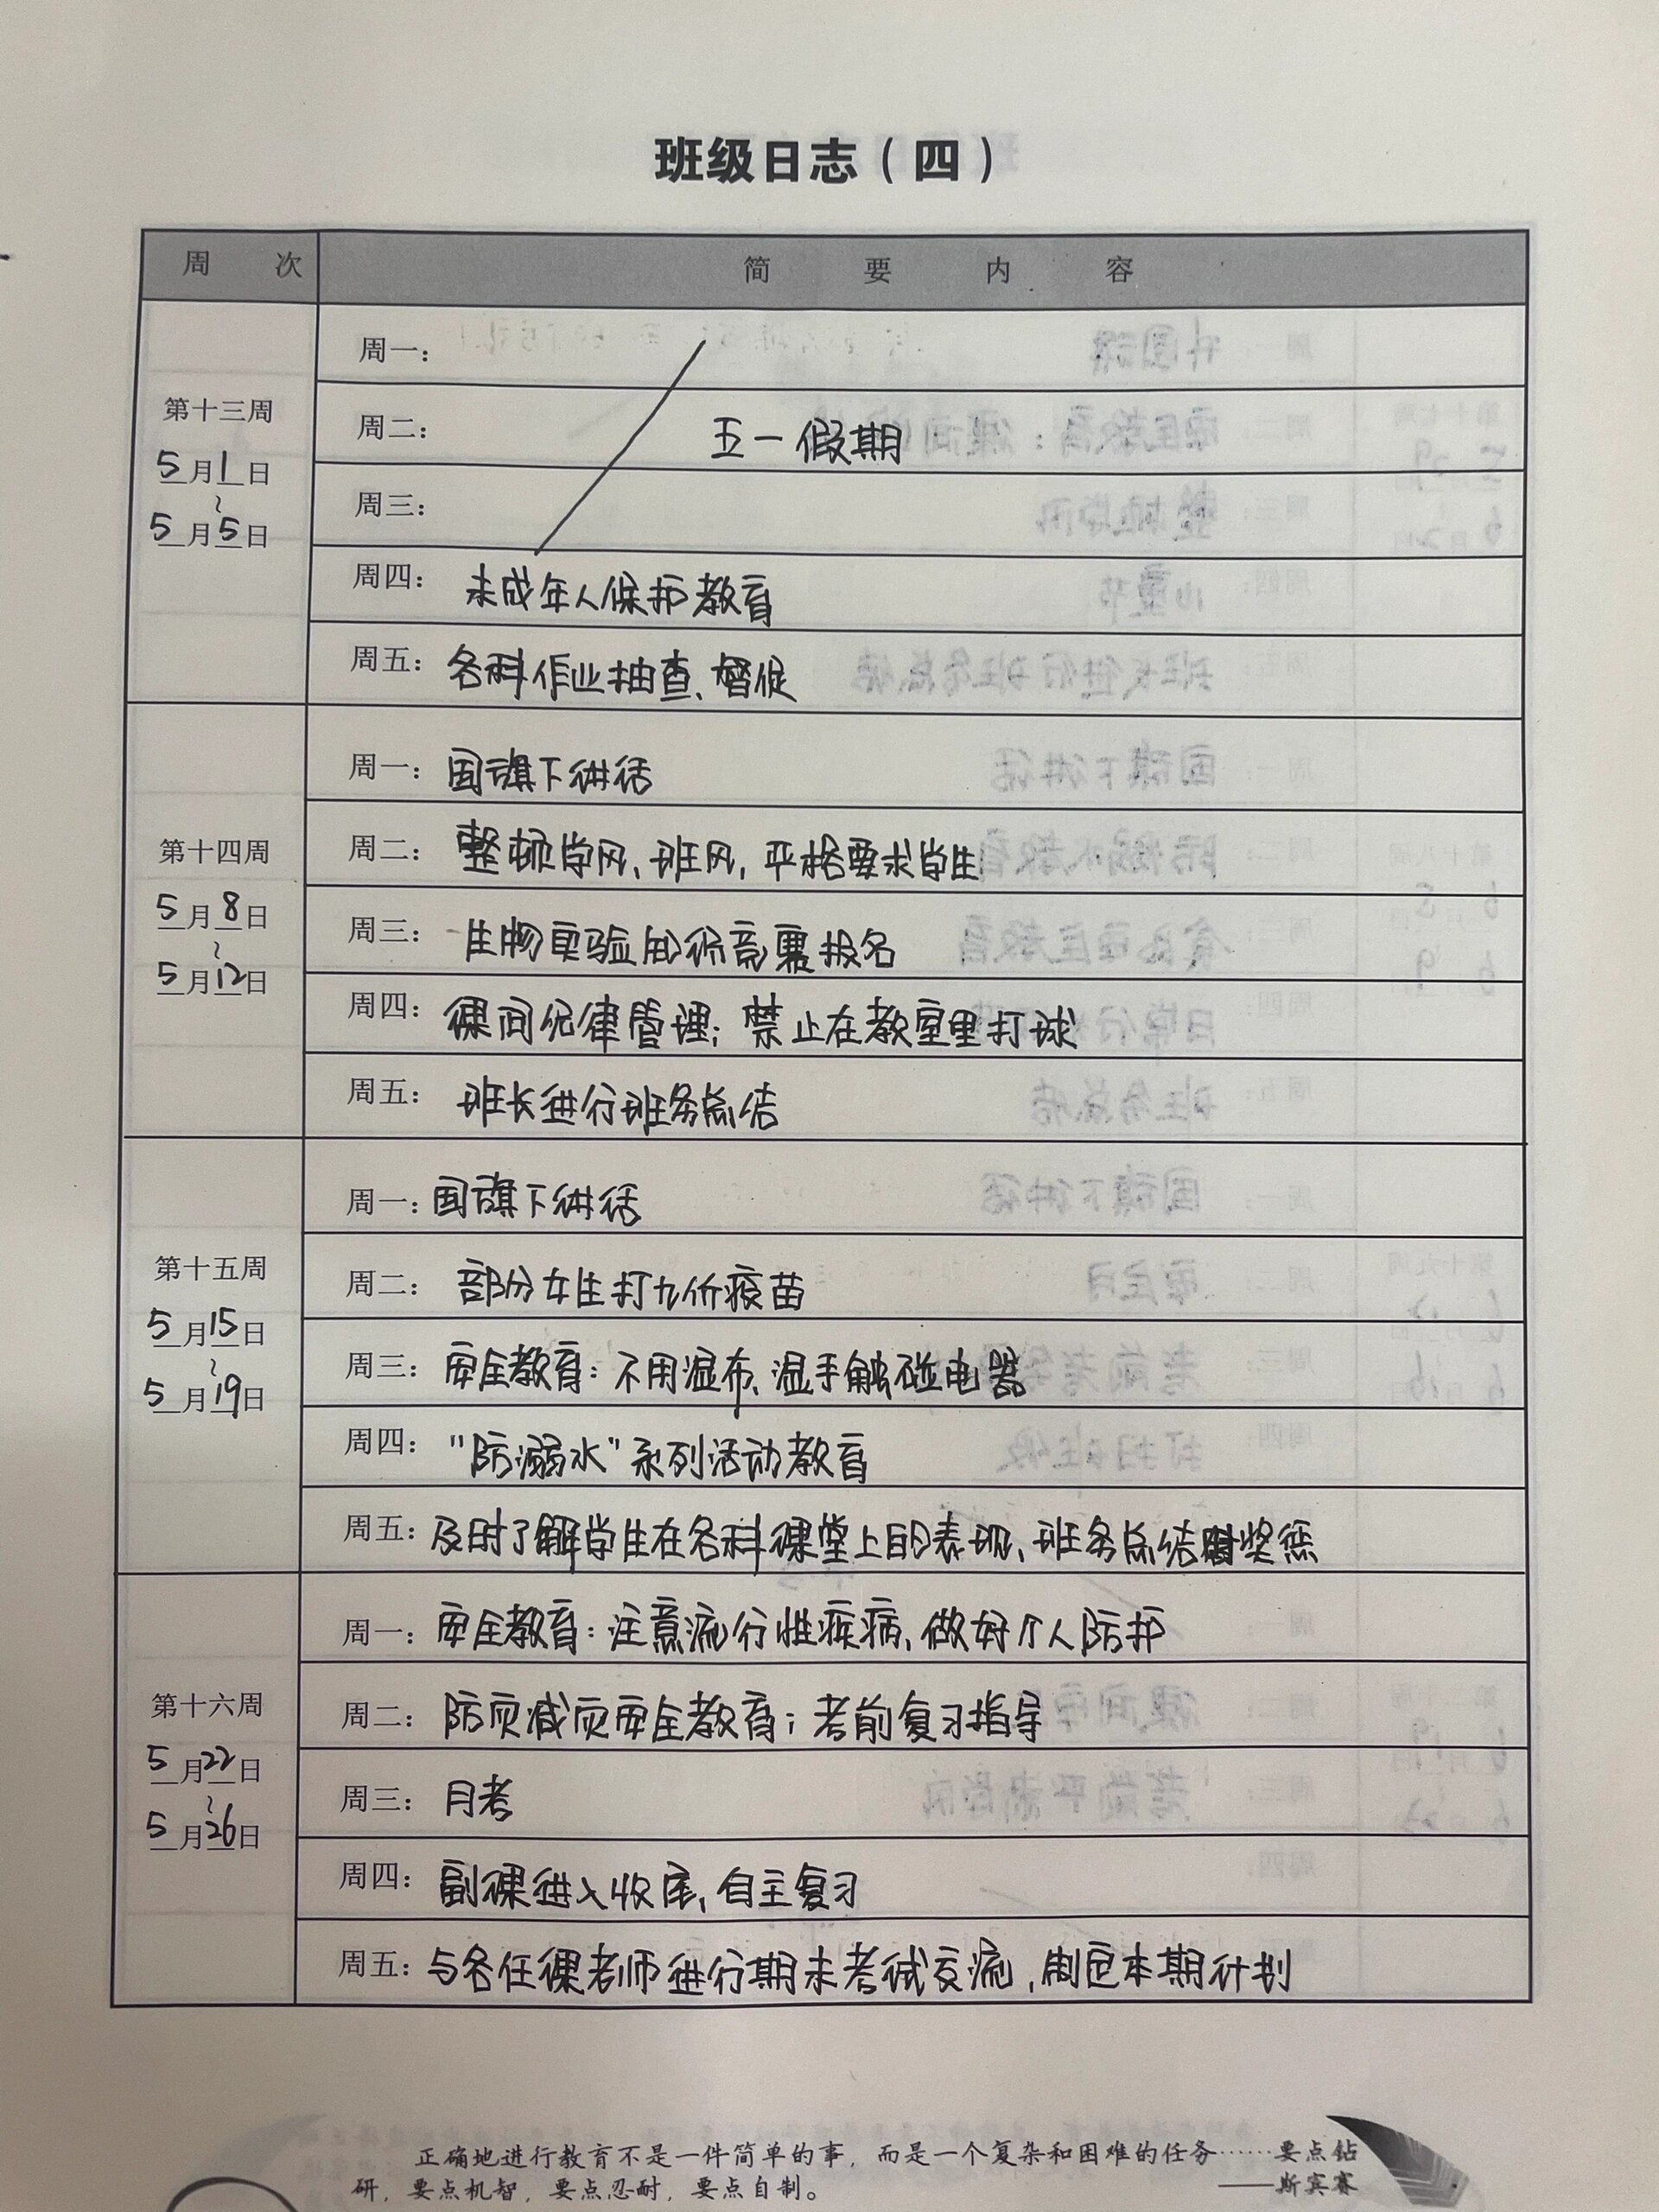 班级日志（四）
周 次 简 要 内 容
第十三周
5月1日
~
5月5日
周一：
周二： 五一假期
周三：
周四： 未成年人保护教育
周五： 各科作业抽查、督促
第十四周
5月8日
~
5月12日
周一： 国旗下讲话
周二： 整顿学风、班风，严格要求学生
周三： 生物实验创新竞赛报名
周四： 课间纪律管理；禁止在教室里打球
周五： 班长进行班务总结
第十五周
5月15日
~
5月19日
周一： 国旗下讲话
周二： 部分女生打九价疫苗
周三： 安全教育：不用湿布、湿手触碰电器
周四： “防溺水”系列活动教育
周五： 及时了解学生在各科课堂上的表现、班务总结奖惩
第十六周
5月22日
~
5月26日
周一： 安全教育：注意流行性疾病、做好个人防护
周二： 防灾减灾安全教育；考前复习指导
周三： 月考
周四： 副课进入收尾，自主复习
周五： 与各任课老师进行期末考试交流，制定本期计划
正确地进行教育不是一件简单的事，而是一个复杂和困难的任务……要点钻
研，要点机智，要点忍耐，要点自制。 ——斯宾塞